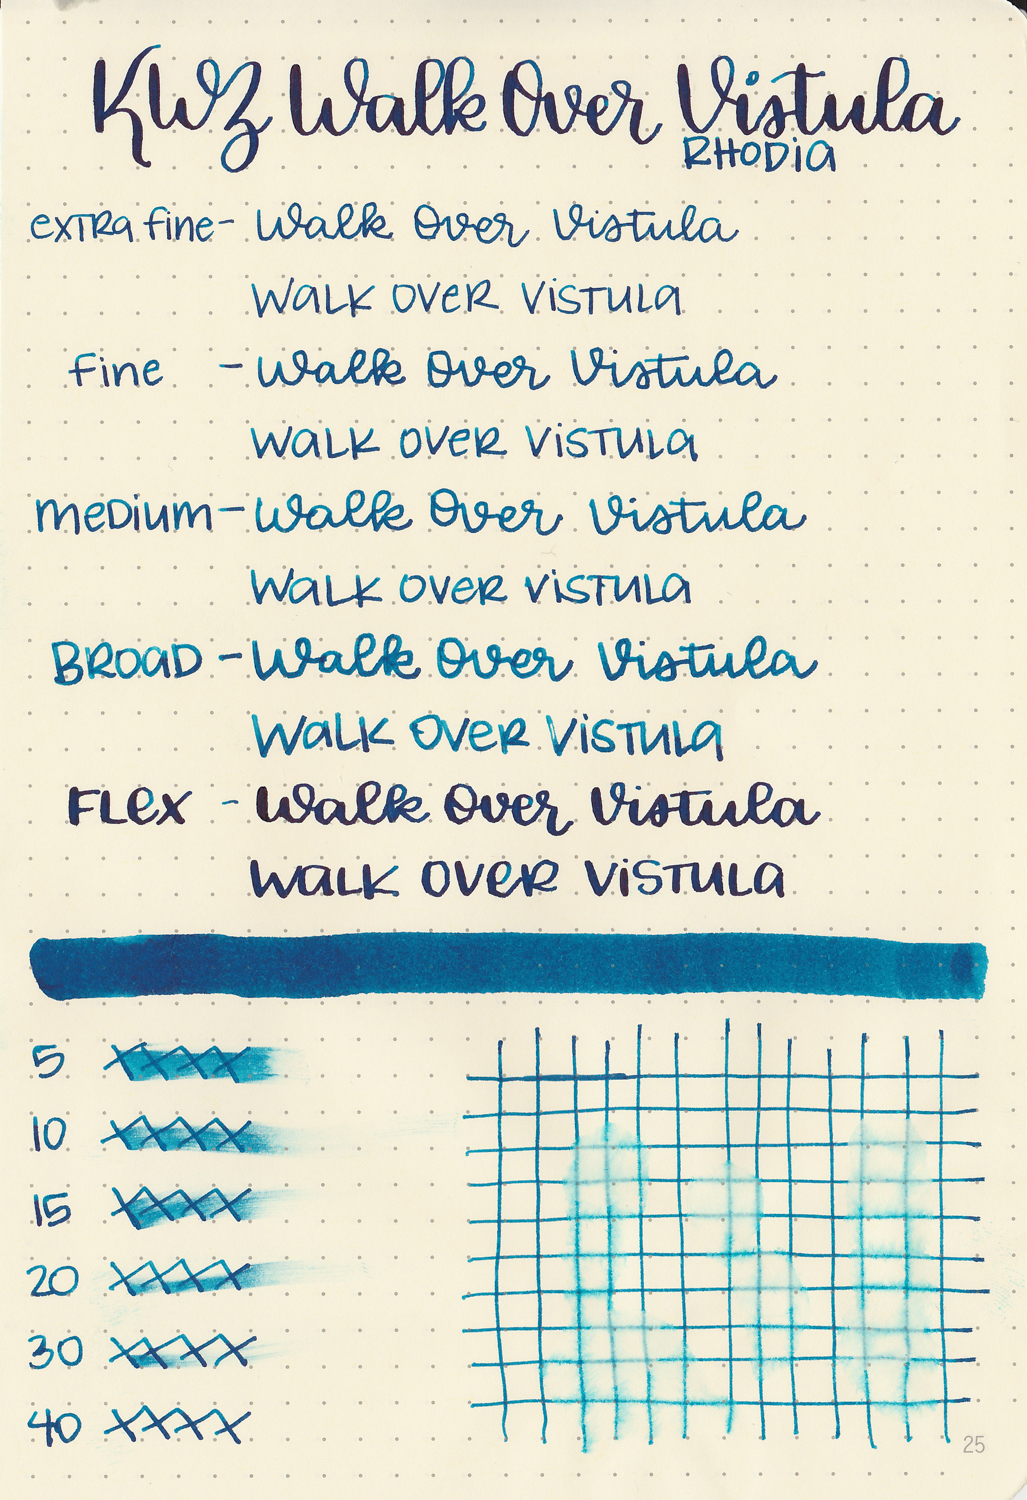 KWZ Walk Over Vistula
RHODIA
extra fine - Walk Over Vistula
WALK OVER VISTULA
fine - Walk Over Vistula
WALK OVER VISTULA
medium - Walk Over Vistula
WALK OVER VISTULA
BROAD - Walk Over Vistula
WALK OVER VISTULA
FLex - Walk Over Vistula
WALK OVER VISTULA
5 XXXX
10 XXXX
15 XXXX
20 XXXX
30 XXXX
40 XXXX
25